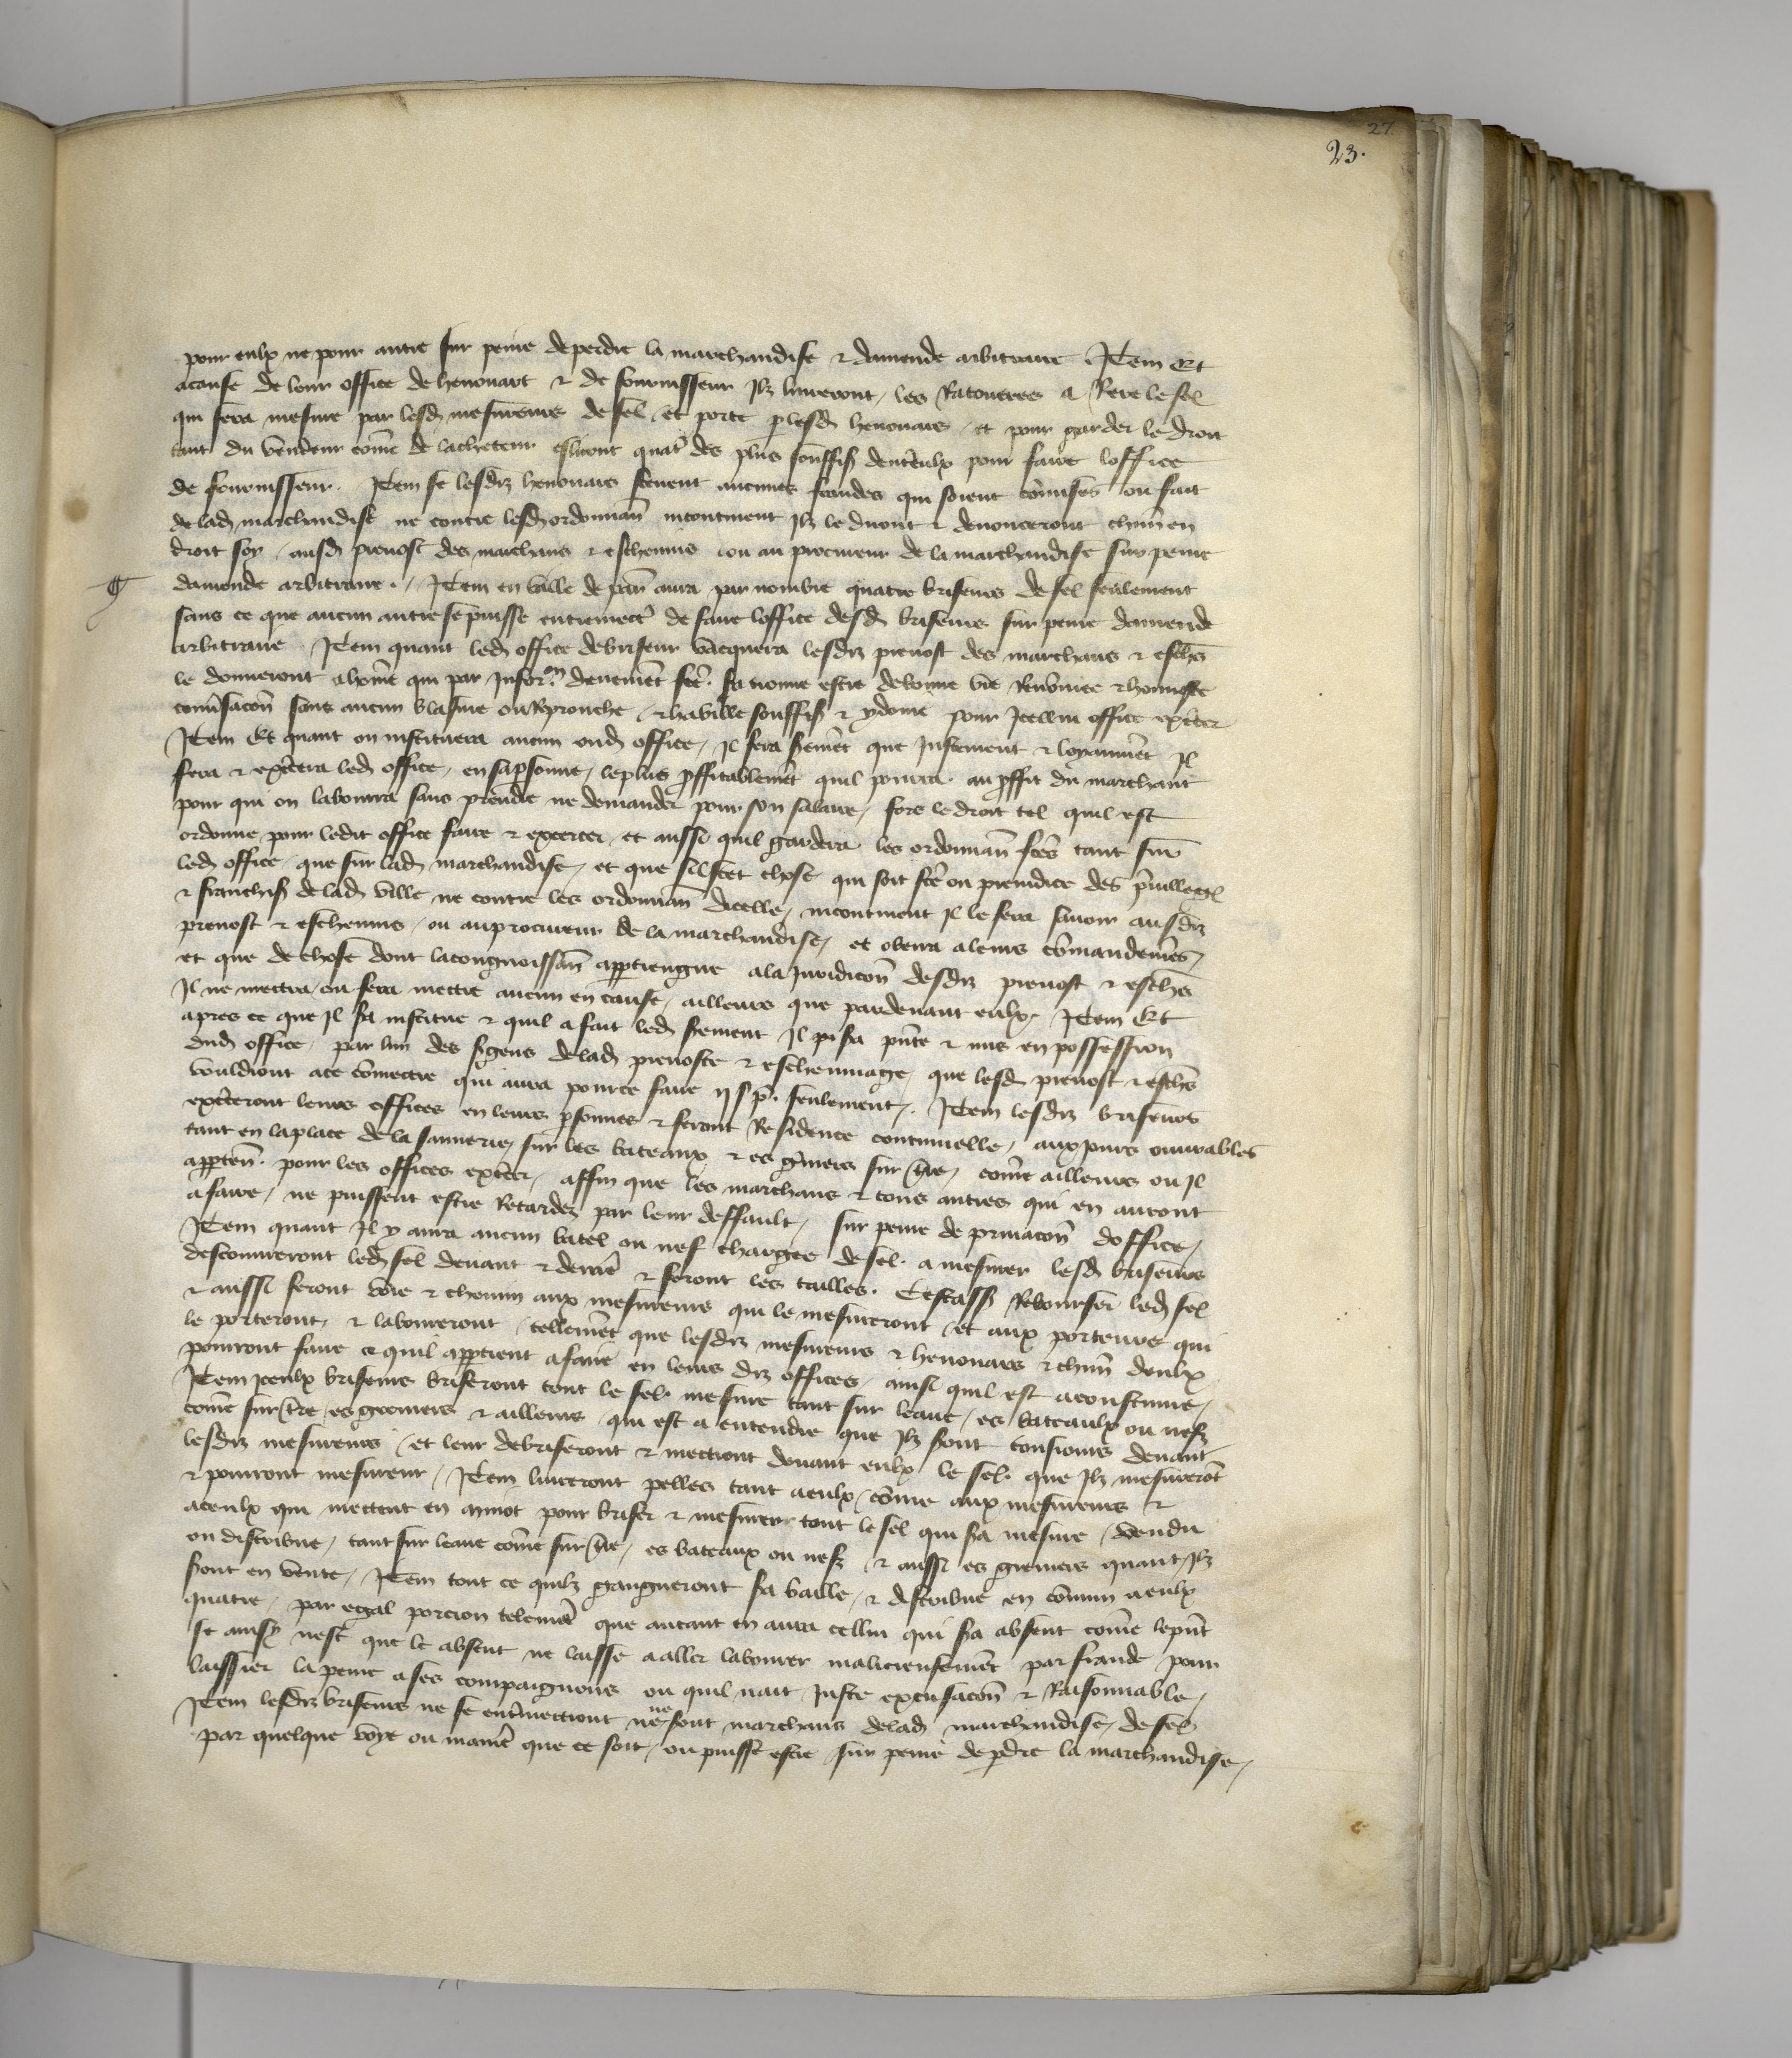 27
23.
pour eulx ne pour autre sur peine de perdre la marchandise & damende arbitraire. Item Et
acause de leur office de henouart & de fournisseur Ilz liureront les Ratoueres a Rere le sel
qui sera mesure par lesd mesureurs de sel et porte p lesd henouars et pour garder le droit
tant du vendeur come de lacheteur esliront quat des plus souffis dentreulx pour faire loffice
de fournisseur. Item se lesdiz henouars sceuent aucunes fraudes qui soient comises ou fait
de lad marchandise ne contre lesd ordonnan incontinent Ilz le diront & denonceront chun en
droit soy ausd preuost des marchans & escheuins ou au procureur de la marchandise sur peine
damende arbitraire. Item en ville de par aura par nombre quatre briseurs de sel seulement
sans ce que aucun autre se puisse entremect de faire loffice desd briseurs sur peine damende
arbitraire Item quant led office de briseur vacquera lesdiz preuost des marchans & eschs
le donneront a home qui par Infor.on deuemet fce. sa trouue estre de bonne vie Renomee & honneste
conusacon sans aucun blasme ou Reprouche & habille souffis & ydoine pour Icellui office excer
Item Et quant on instituera aucun oud office Il fera sement que Justement & loyaument Il
fera & excera led office en sa psonne le plus pffitablemet quil pourra au pffit du marchant
pour qui on labourra sans prendre ne demander pour son salaire fors le droit tel quil est
ordonne pour ledit office faire & exercer et aussi quil gardera les ordonnan fces tant sur
led office que sur lad marchandise et que sil scet chose qui soit fce ou preiudice des priuileges
& franchis de lad ville ne contre les ordonnan dicelle incontinent Il le fera sauoir ausdiz
preuost & escheuins ou au procureur de la marchandise et obeira a leurs comandemes
et que de chose dont la congnoissan apptiengne a la Juridicon desdiz preuost & eschs
Il ne mectra ou fera mectre aucun en cause ailleurs que pardeuant eulx. Item Et
apres ce que Il sa institue & quil a fait led sement Il sa pnte & mis en possession
dud office par lun des sgens de lad preuoste & escheuinage que lesd preuost & eschs
vouldront ace comectre qui aura pource faire ii s p. seulement. Item lesdiz briseurs
exceront leurs offices en leurs psonnes & feront Residence continuelle aux jours ouurables
tant en la place de la saunerie sur les bateaux & es greniers sur tre come ailleurs ou Il
appten. pour les offices excer affin que les marchans & tous autres qui en auront
a faire ne puissent estre Retardez par leur deffault sur peine de priuacon doffice
Item quant Il y aura aucun batel ou nef chargee de sel a mesurer lesd briseurs
descouureront led sel deuant & derrie & feront les tailles. Cestass Rebourser led sel
& aussi feront voie & chemin aux mesureurs qui le mesureront et aux porteurs qui
le porteront & laboureront tellemet que lesdiz mesureurs & henouars & chun deulx
pourront faire ce quil apptient a faire en leurs diz offices ainsi quil est acoustume
Item Iceulx briseurs briseront tout le sel mesure tant sur leaue es bateaulx ou nefz
come sur tre es greniers & ailleurs qui est a entendre que Ilz sont tousiours deuant
lesdiz mesureurs et leur debriseront & mectront deuant eulx le sel que Ilz mesurerot
& pourront mesureur Item liureront pelles tant a eulx come aux mesureurs &
a ceulx qui mettent en minot pour briser & mesurer tout le sel qui sa mesure vendu
ou distribue tant sur leaue come sur tre es bateaux ou nefz & aussi es greniers quant Ilz
sont en vente Item tout ce quilz gaigneront sa baille & distribue en comun a eulx
quatre par egal porcion telemet que autant en aura cellui qui sa absent come le pnt
se ainsy nest que le absent ne laisse a aller labourer malicieusemet par fraude pour
laissier la peine a ses compaignons ou quil nait Juste excusacon & Raisonnable
Item lesdiz briseurs ne se entmectront ne ne sont marchans de lad marchandise de sel
par quelque voye ou manie que ce soit ou puisse estre sur peine de pdre la marchandise